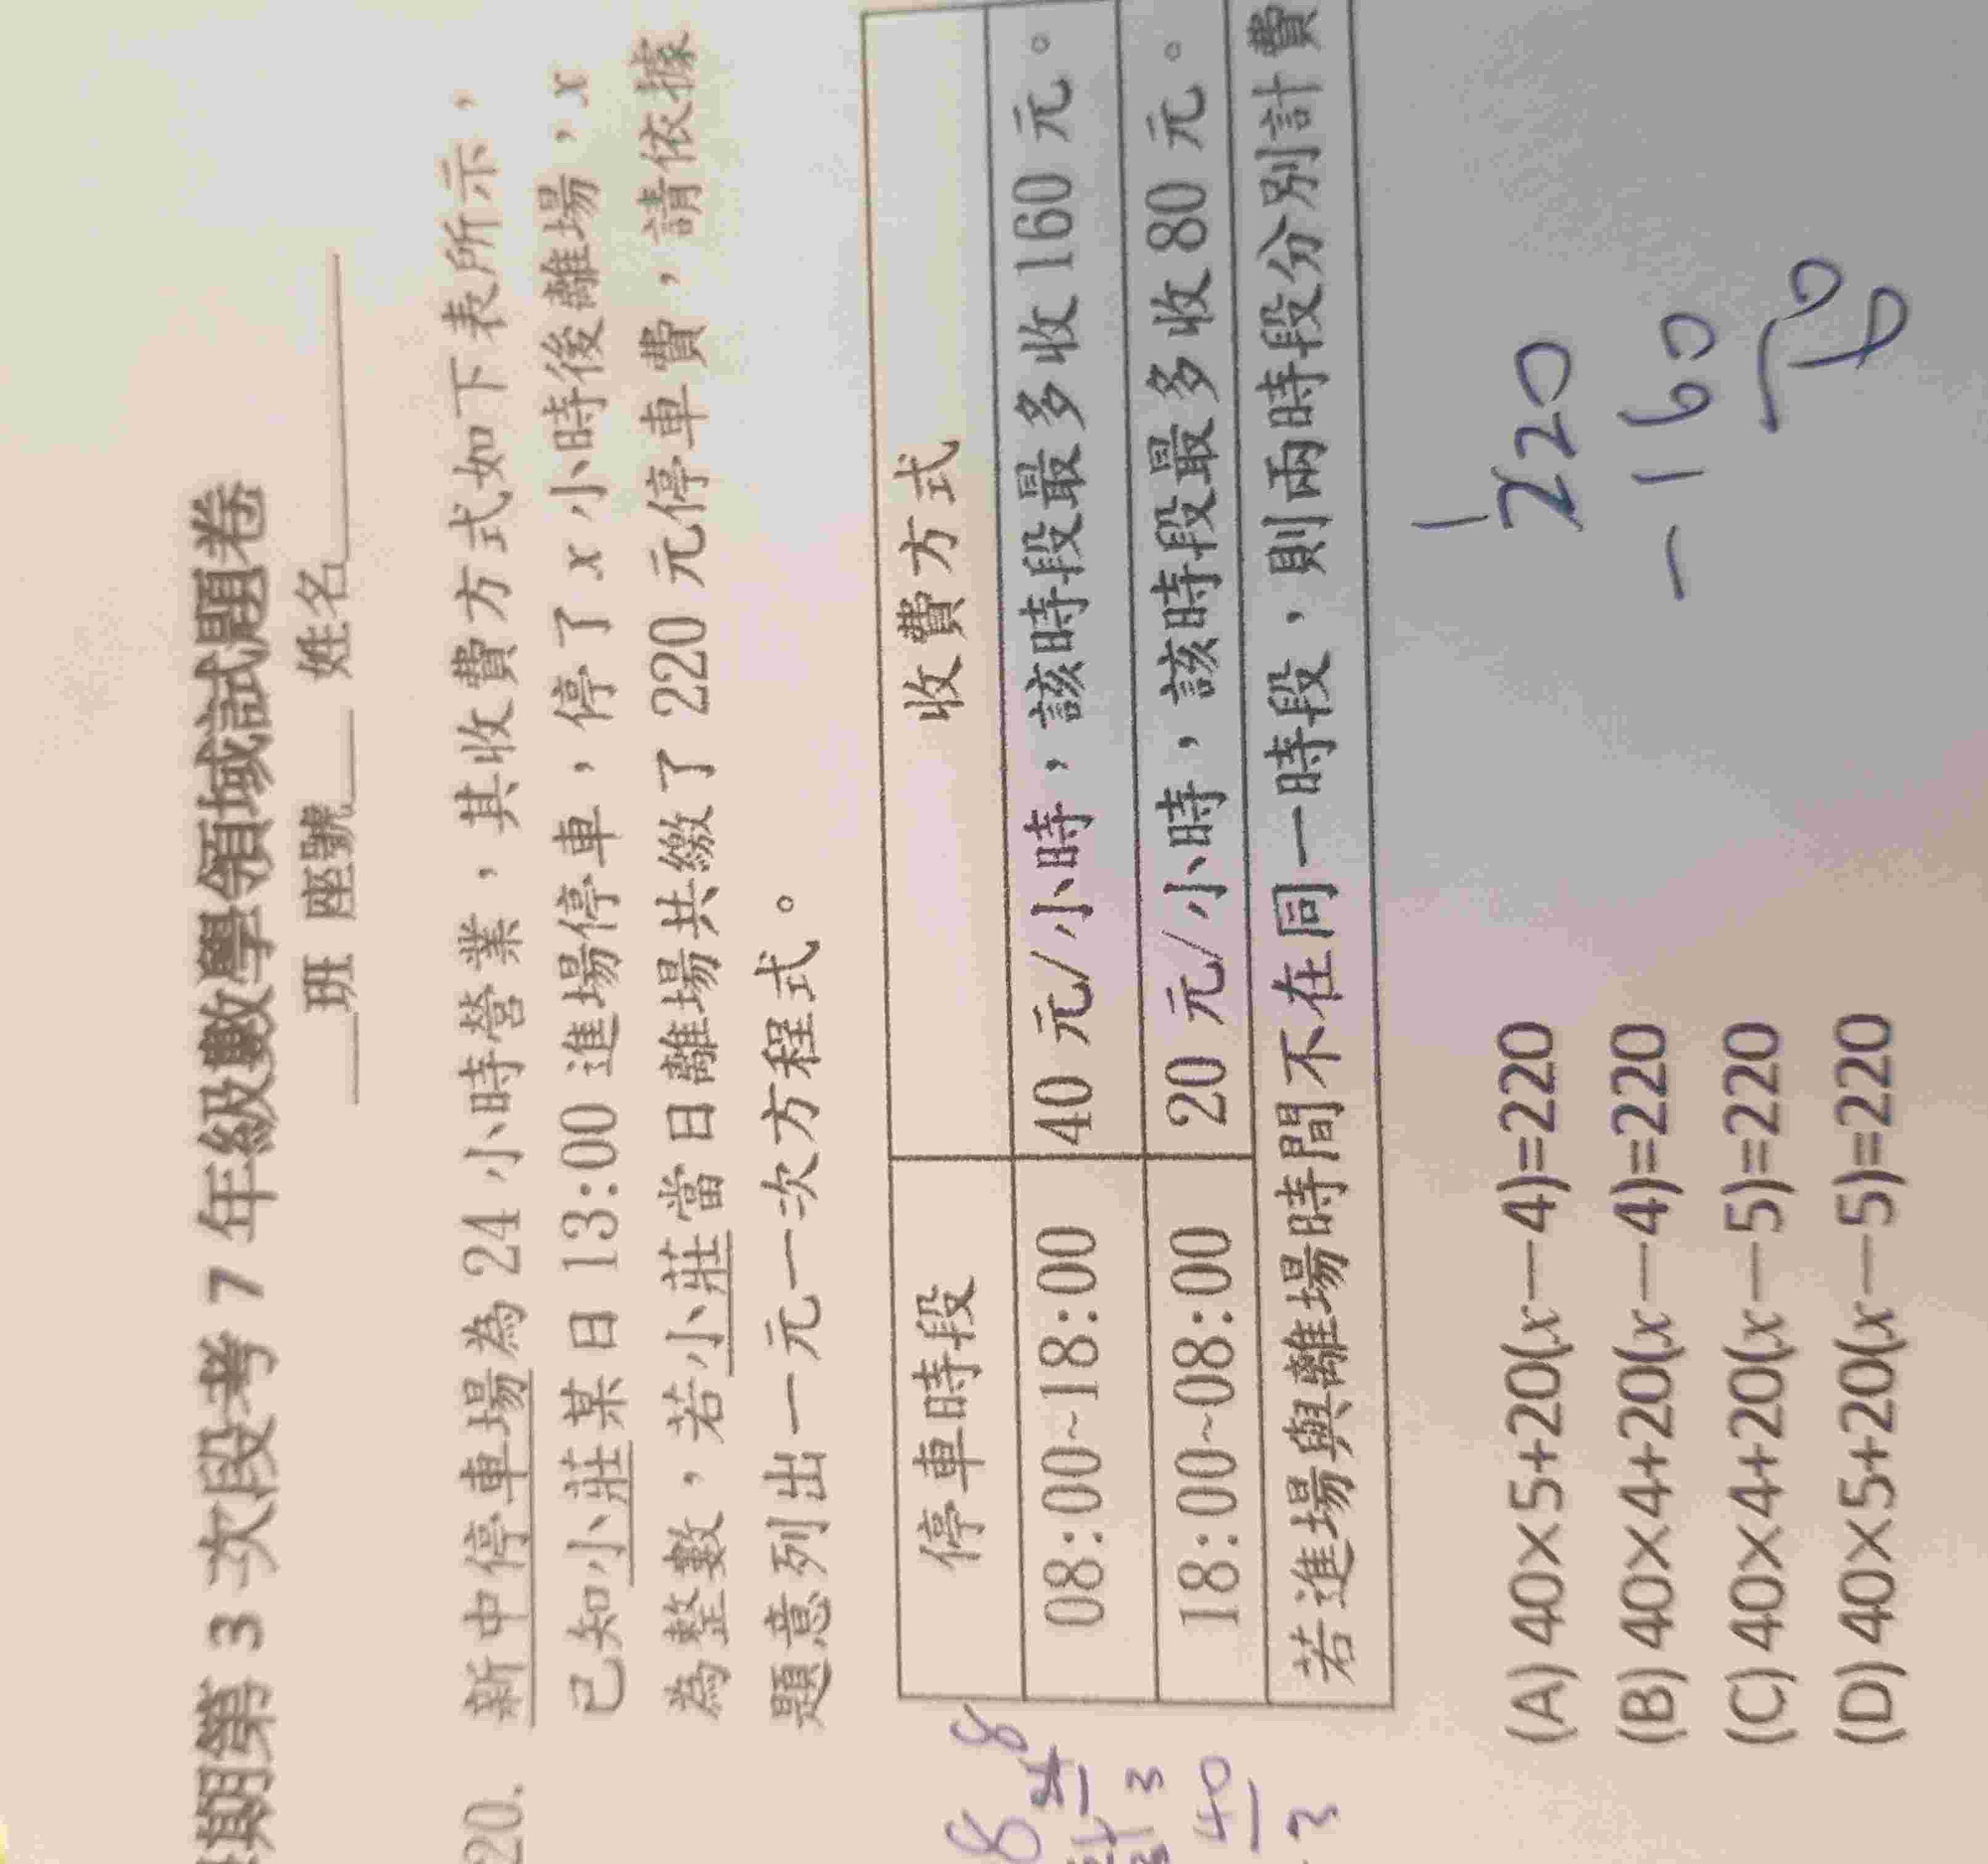 期第 3 次段考 7 年級數學領域試題卷
__班 座號__ 姓名______
20. 新中停車場為 24 小時營業，其收費方式如下表所示，
已知小莊某日 13:00 進場停車，停了 x 小時後離場，x
為整數，若小莊當日離場共繳了 220 元停車費，請依據
題意列出一元一次方程式。
停車時段 收費方式
08:00~18:00 40 元/小時，該時段最多收 160 元。
18:00~08:00 20 元/小時，該時段最多收 80 元。
若進場與離場時間不在同一時段，則兩時段分別計費
(A) 40×5+20(x－4)=220
(B) 40×4+20(x－4)=220
(C) 40×4+20(x－5)=220
(D) 40×5+20(x－5)=220
220
-160
40